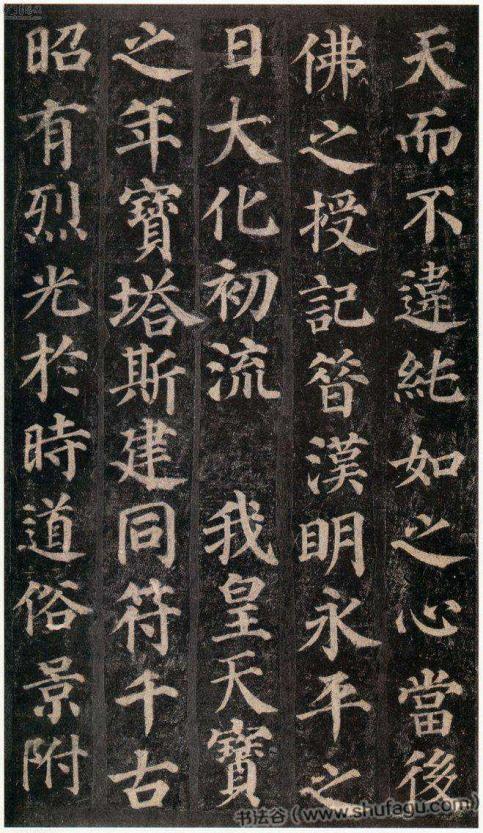 天而不違純如之心當後
佛之授記昔漢明永平之
日大化初流我皇天寶
之年寶塔斯建同符千古
昭有烈光於時道俗景附
书法谷（www.shufagu.com）